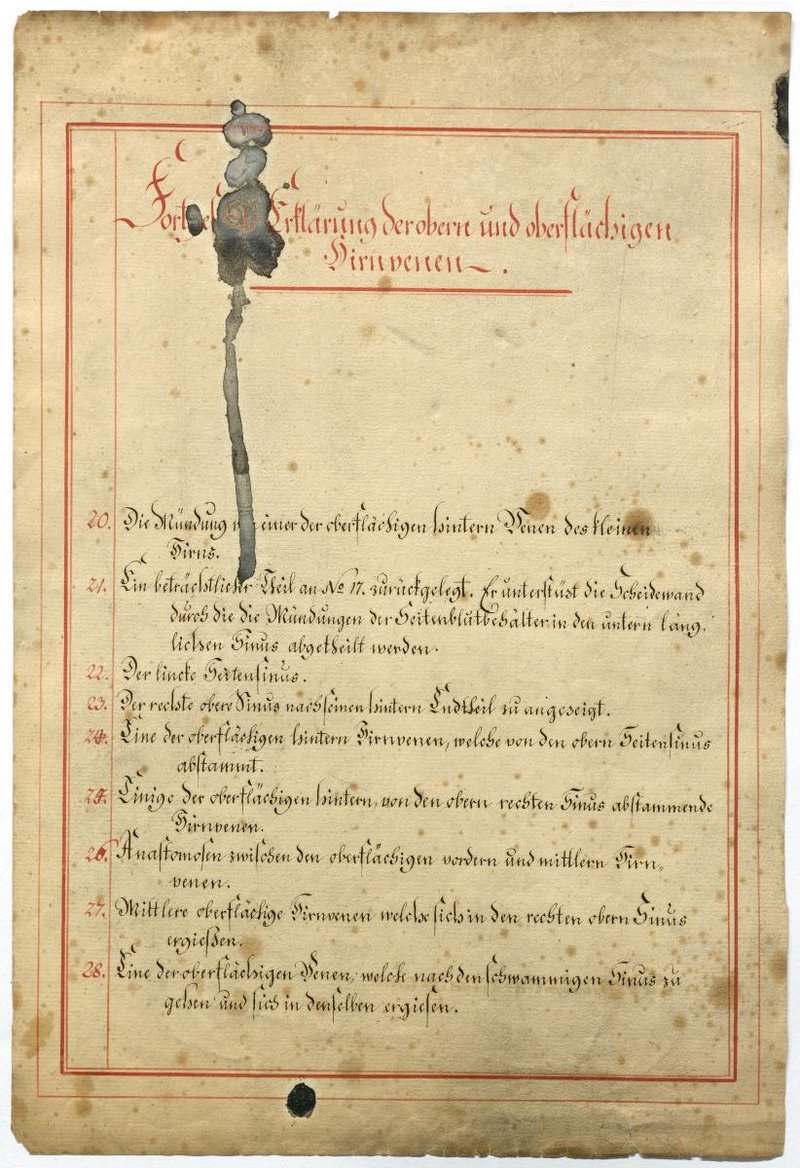 Erklärung der obern und oberflächigen
Hirnvenen.
20. Die Mündung einer der oberflächigen hintern Venen des kleinen
Hirns.
21. Ein beträchtlicher Theil an No 17. zurückgelegt. Er unterstüzt die Scheidewand
durch die die Mündungen der Seitenblutbehälter in den untern läng„
lichen Sinus abgetheilt werden.
22. Der lincke Seitensinus.
23. Der rechte obere Sinus nach seinen hintern Endtheil zu angezeigt.
24. Eine der oberflächigen hintern Hirnvenen, welche von den obern Seitensinus
abstammt.
25. Einige der oberflächigen hintern, von den obern rechten Sinus abstammende
Hirnvenen.
26. Anastomosen zwischen den oberflächigen vordern und mittlern Hirn„
venen.
27. Mittlere oberflächige Hirnvenen welche sich in den rechten obern Sinus
ergießen.
28. Eine der oberflächigen Venen, welche nach den schwammigen Sinus zu
gehen und sich in denselben ergiesen.